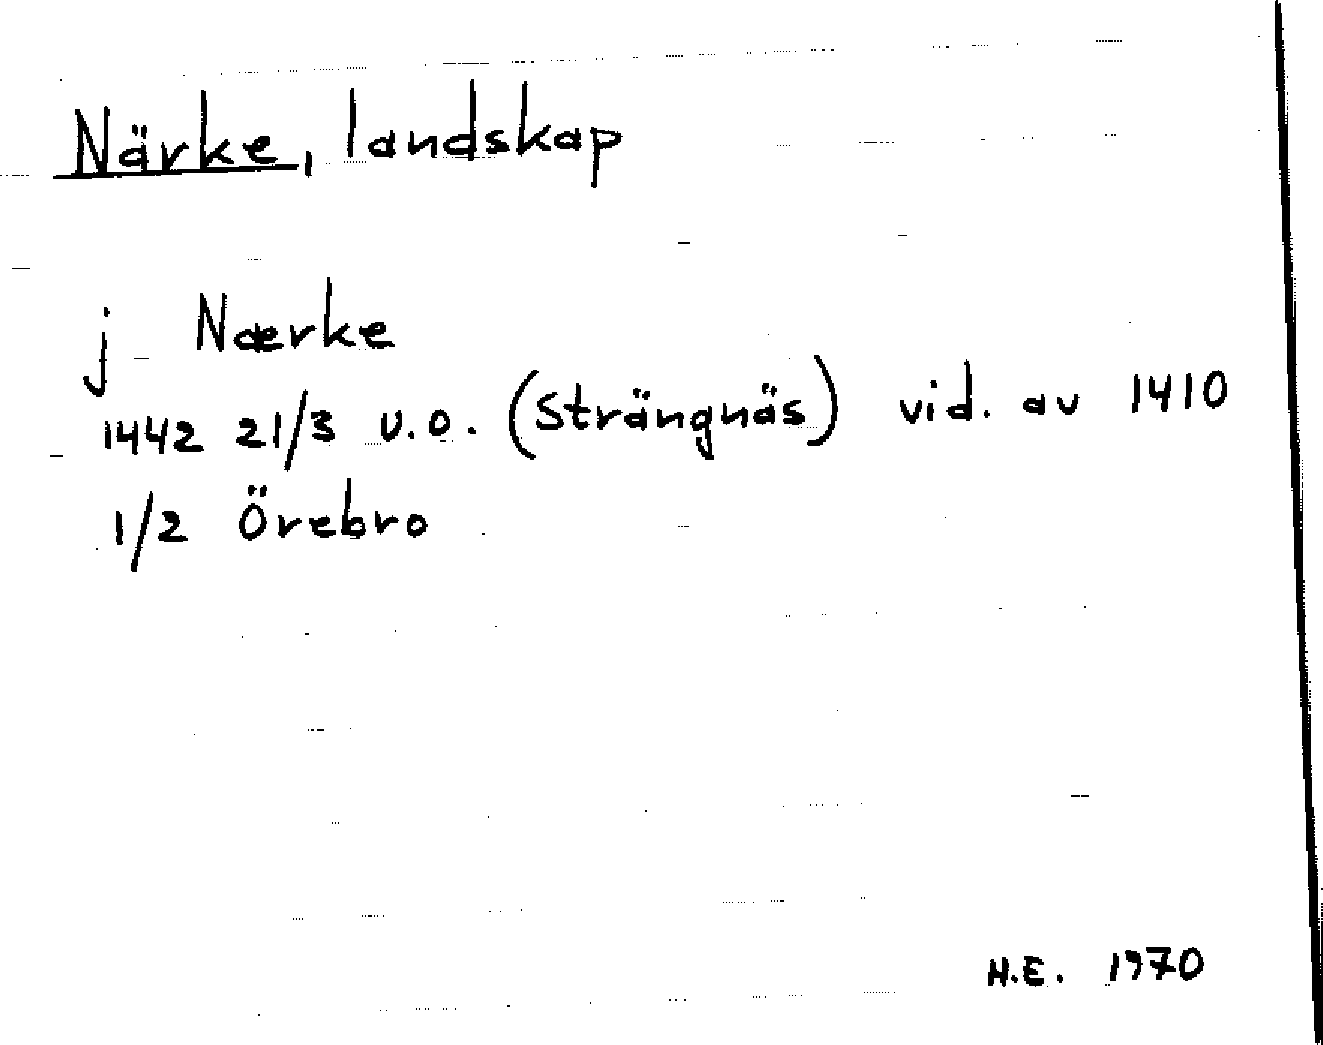 Närke, landskap
j Nærke
1442 21/3 u.o. (Strängnäs) vid. av 1410
1/2 Örebro
H.E. 1970